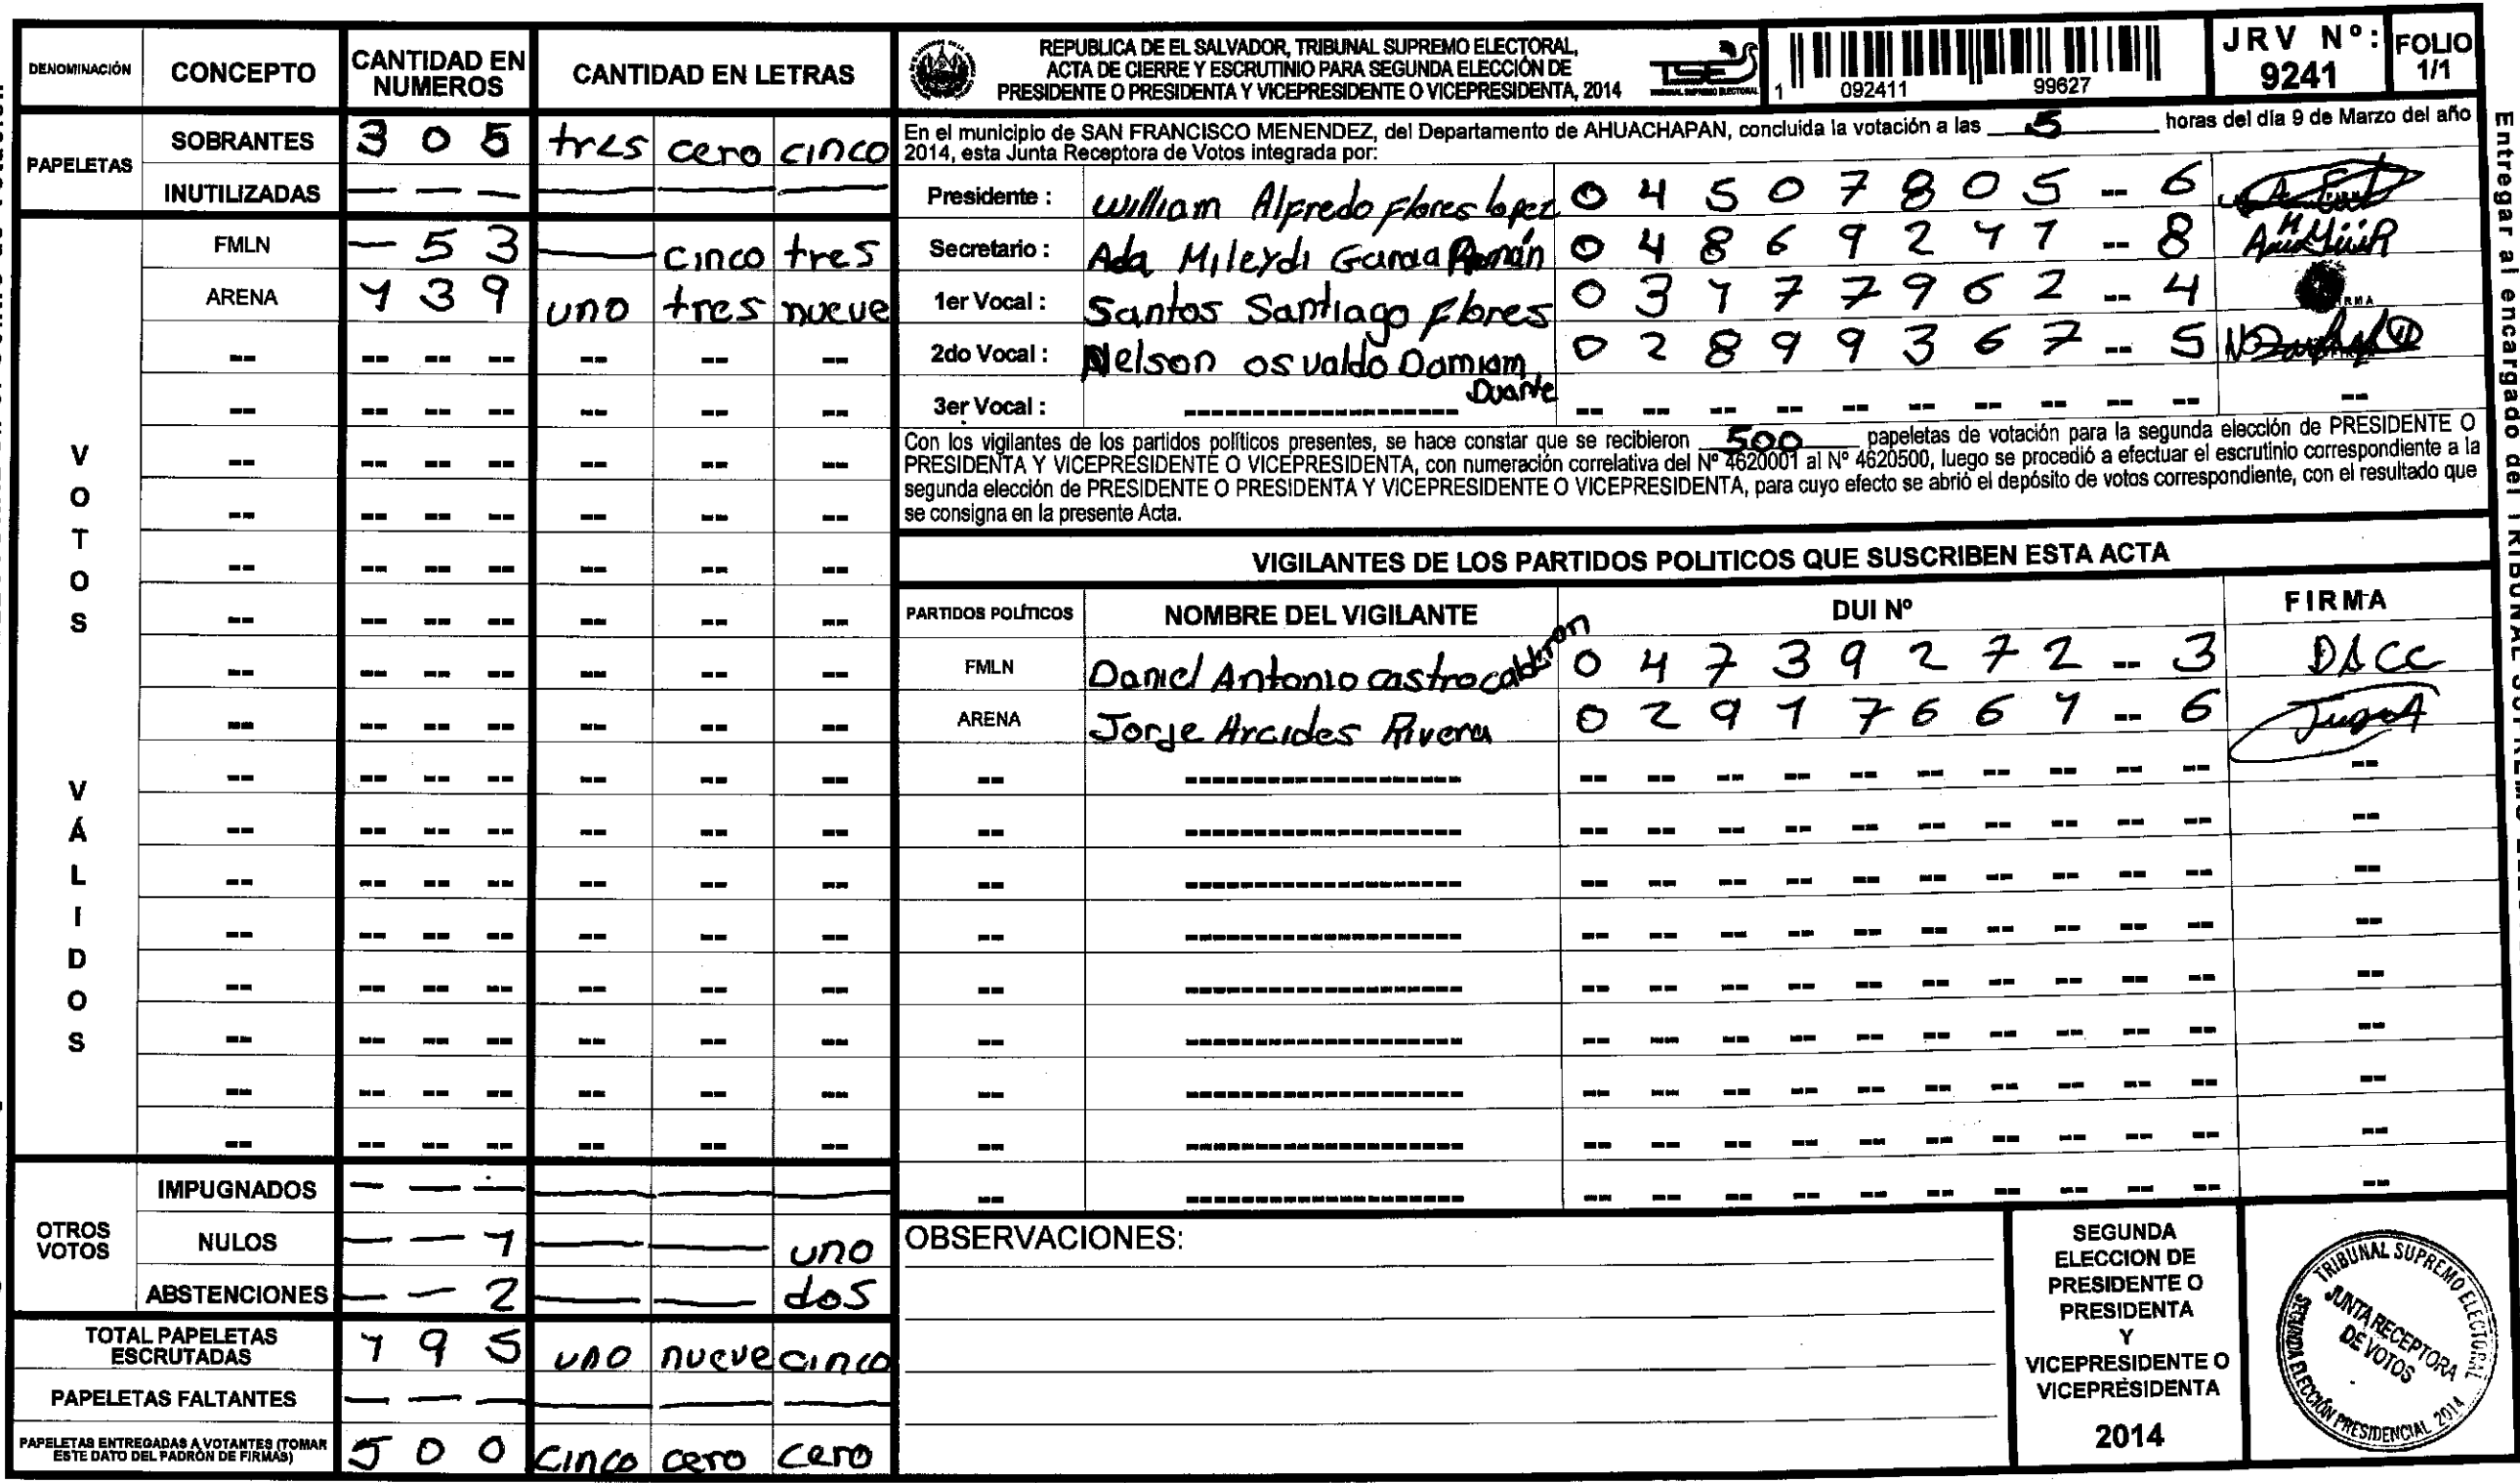 DENOMINACIÓN CONCEPTO CANTIDAD EN NUMEROS CANTIDAD EN LETRAS
PAPELETAS
SOBRANTES 3 0 5 tres cero cinco
INUTILIZADAS — — — — — —
VOTOS VÁLIDOS
FMLN — 5 3 — cinco tres
ARENA 1 3 9 uno tres nueve
OTROS VOTOS
IMPUGNADOS — — — — — —
NULOS — — 1 — — uno
ABSTENCIONES — — 2 — — dos
TOTAL PAPELETAS ESCRUTADAS 1 9 5 uno nueve cinco
PAPELETAS FALTANTES — — — — — —
PAPELETAS ENTREGADAS A VOTANTES (TOMAR ESTE DATO DEL PADRÓN DE FIRMAS) 5 0 0 cinco cero cero
REPUBLICA DE EL SALVADOR, TRIBUNAL SUPREMO ELECTORAL,
ACTA DE CIERRE Y ESCRUTINIO PARA SEGUNDA ELECCIÓN DE
PRESIDENTE O PRESIDENTA Y VICEPRESIDENTE O VICEPRESIDENTA, 2014
TSE
TRIBUNAL SUPREMO ELECTORAL
1 092411 99627
JRV Nº: 9241
FOLIO 1/1
En el municipio de SAN FRANCISCO MENENDEZ, del Departamento de AHUACHAPAN, concluida la votación a las 5 horas del día 9 de Marzo del año
2014, esta Junta Receptora de Votos integrada por:
Presidente : William Alfredo Flores lopez 0 4 5 0 7 8 0 5 -- 6
Secretario : Ada Mileydi Garcia Román 0 4 8 6 9 2 1 1 -- 8
1er Vocal : Santos Santiago Flores 0 3 1 7 7 9 6 2 -- 4
2do Vocal : Nelson osvaldo Damiam Duarte 0 2 8 9 9 3 6 7 -- 5
3er Vocal :
Con los vigilantes de los partidos políticos presentes, se hace constar que se recibieron 500 papeletas de votación para la segunda elección de PRESIDENTE O
PRESIDENTA Y VICEPRESIDENTE O VICEPRESIDENTA, con numeración correlativa del Nº 4620001 al Nº 4620500, luego se procedió a efectuar el escrutinio correspondiente a la
segunda elección de PRESIDENTE O PRESIDENTA Y VICEPRESIDENTE O VICEPRESIDENTA, para cuyo efecto se abrió el depósito de votos correspondiente, con el resultado que
se consigna en la presente Acta.
VIGILANTES DE LOS PARTIDOS POLITICOS QUE SUSCRIBEN ESTA ACTA
PARTIDOS POLÍTICOS NOMBRE DEL VIGILANTE DUI Nº FIRMA
FMLN Daniel Antonio castro calderon 0 4 7 3 9 2 7 2 -- 3 DACC
ARENA Jorje Arcides Rivera 0 2 9 1 7 6 6 1 -- 6
OBSERVACIONES:
SEGUNDA
ELECCION DE
PRESIDENTE O
PRESIDENTA
Y
VICEPRESIDENTE O
VICEPRESIDENTA
2014
TRIBUNAL SUPREMO ELECTORAL
JUNTA RECEPTORA
DE VOTOS
SEGUNDA ELECCIÓN PRESIDENCIAL 2014
Entregar al encargado del TRIBUNAL SUPREMO